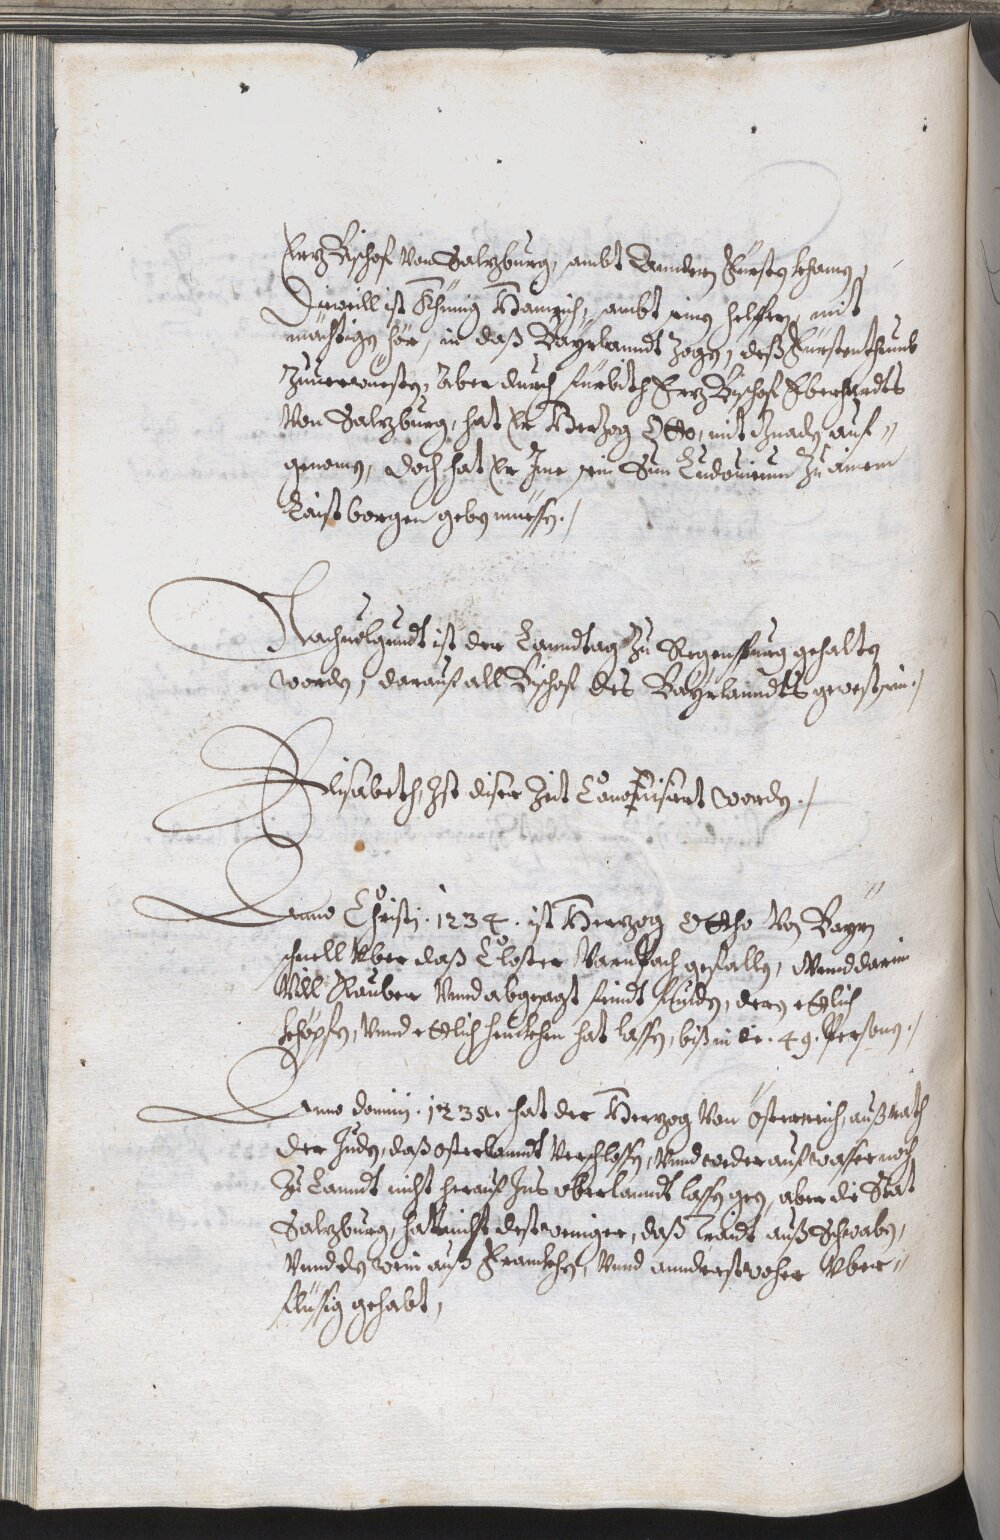 Ertz Bischof von Salzburg, sambt Anndern Fürsten khamen,
Dieweill ist Khünig Hainrich, sambt seinen helffern, mit
mächtigen hör, in daß Bayrlanndt zogen, deß Fürstenthumb
Zuuerwüesten, Aber durch fürbith Ertz Bischof Eberhardts
Von Salzburg, hat Er Herzog Otto, mit gnaden auf-
genomen, doch hat Er Ime sein Sun Ludouicum zu ainem
Laistborgen geben müessen./
Nachuolgundt ist der Lanndtag zu Regenspurg gehalten
worden, darauf all Bischof des Bayrlanndts gewest sein./
Elisabeth, Ist diser Zeit Canonisiert worden./
Anno Christi. 1234. ist Herzog Ottho Von Bayrn
schnell Vber daß Closter Varnpach gefallen, Vnnd darin
Vill Rauber Vnnd abgesagt feindt funden, deren ettlich
khöpfen, Vnnd ettlich henckhen hat lassen, biß in die .49. Personen./
Anno domini. 1235. hat der Herzog Von Österreich, auß rath
der Juden, daß osterlanndt Verschlossen, Vnnd weder auf wasser noch
Zu Lanndt nicht herauf Ins oberlanndt lassen geen, aber die Stat
Salzburg, hat nicht destweniger, daß Traidt auß Schwaben,
Vnnd den wein auß Franckhen, Vnnd annderstwoher Vber-
flüssig gehabt,